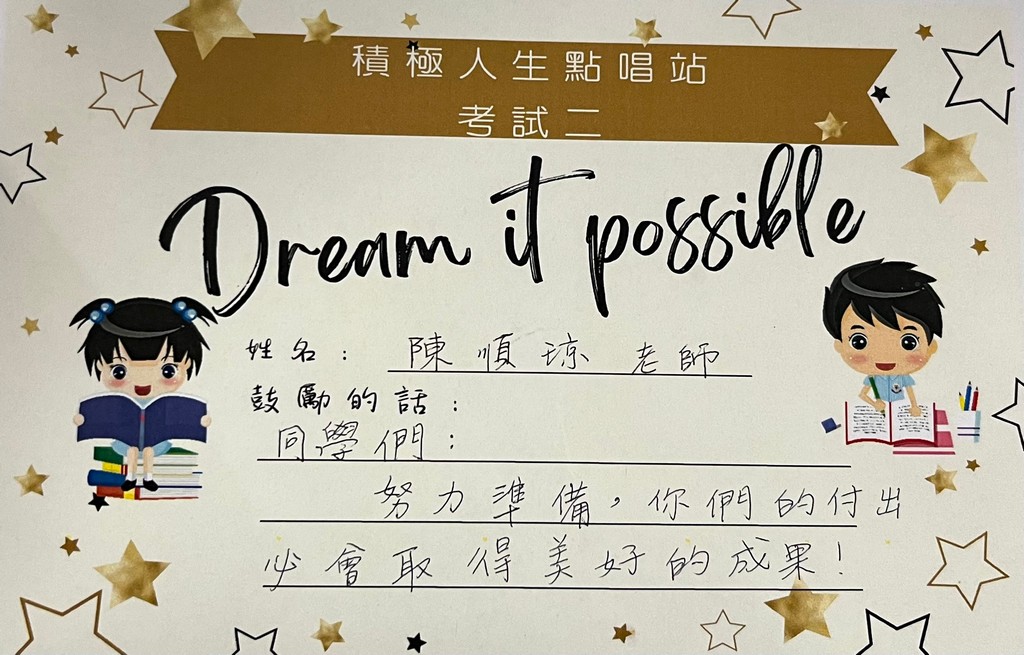 積極人生點唱站
考試二
Dream it possible
姓名：陳順琼老師
鼓勵的話：
同學們：
努力準備，你們的付出
必會取得美好的成果！